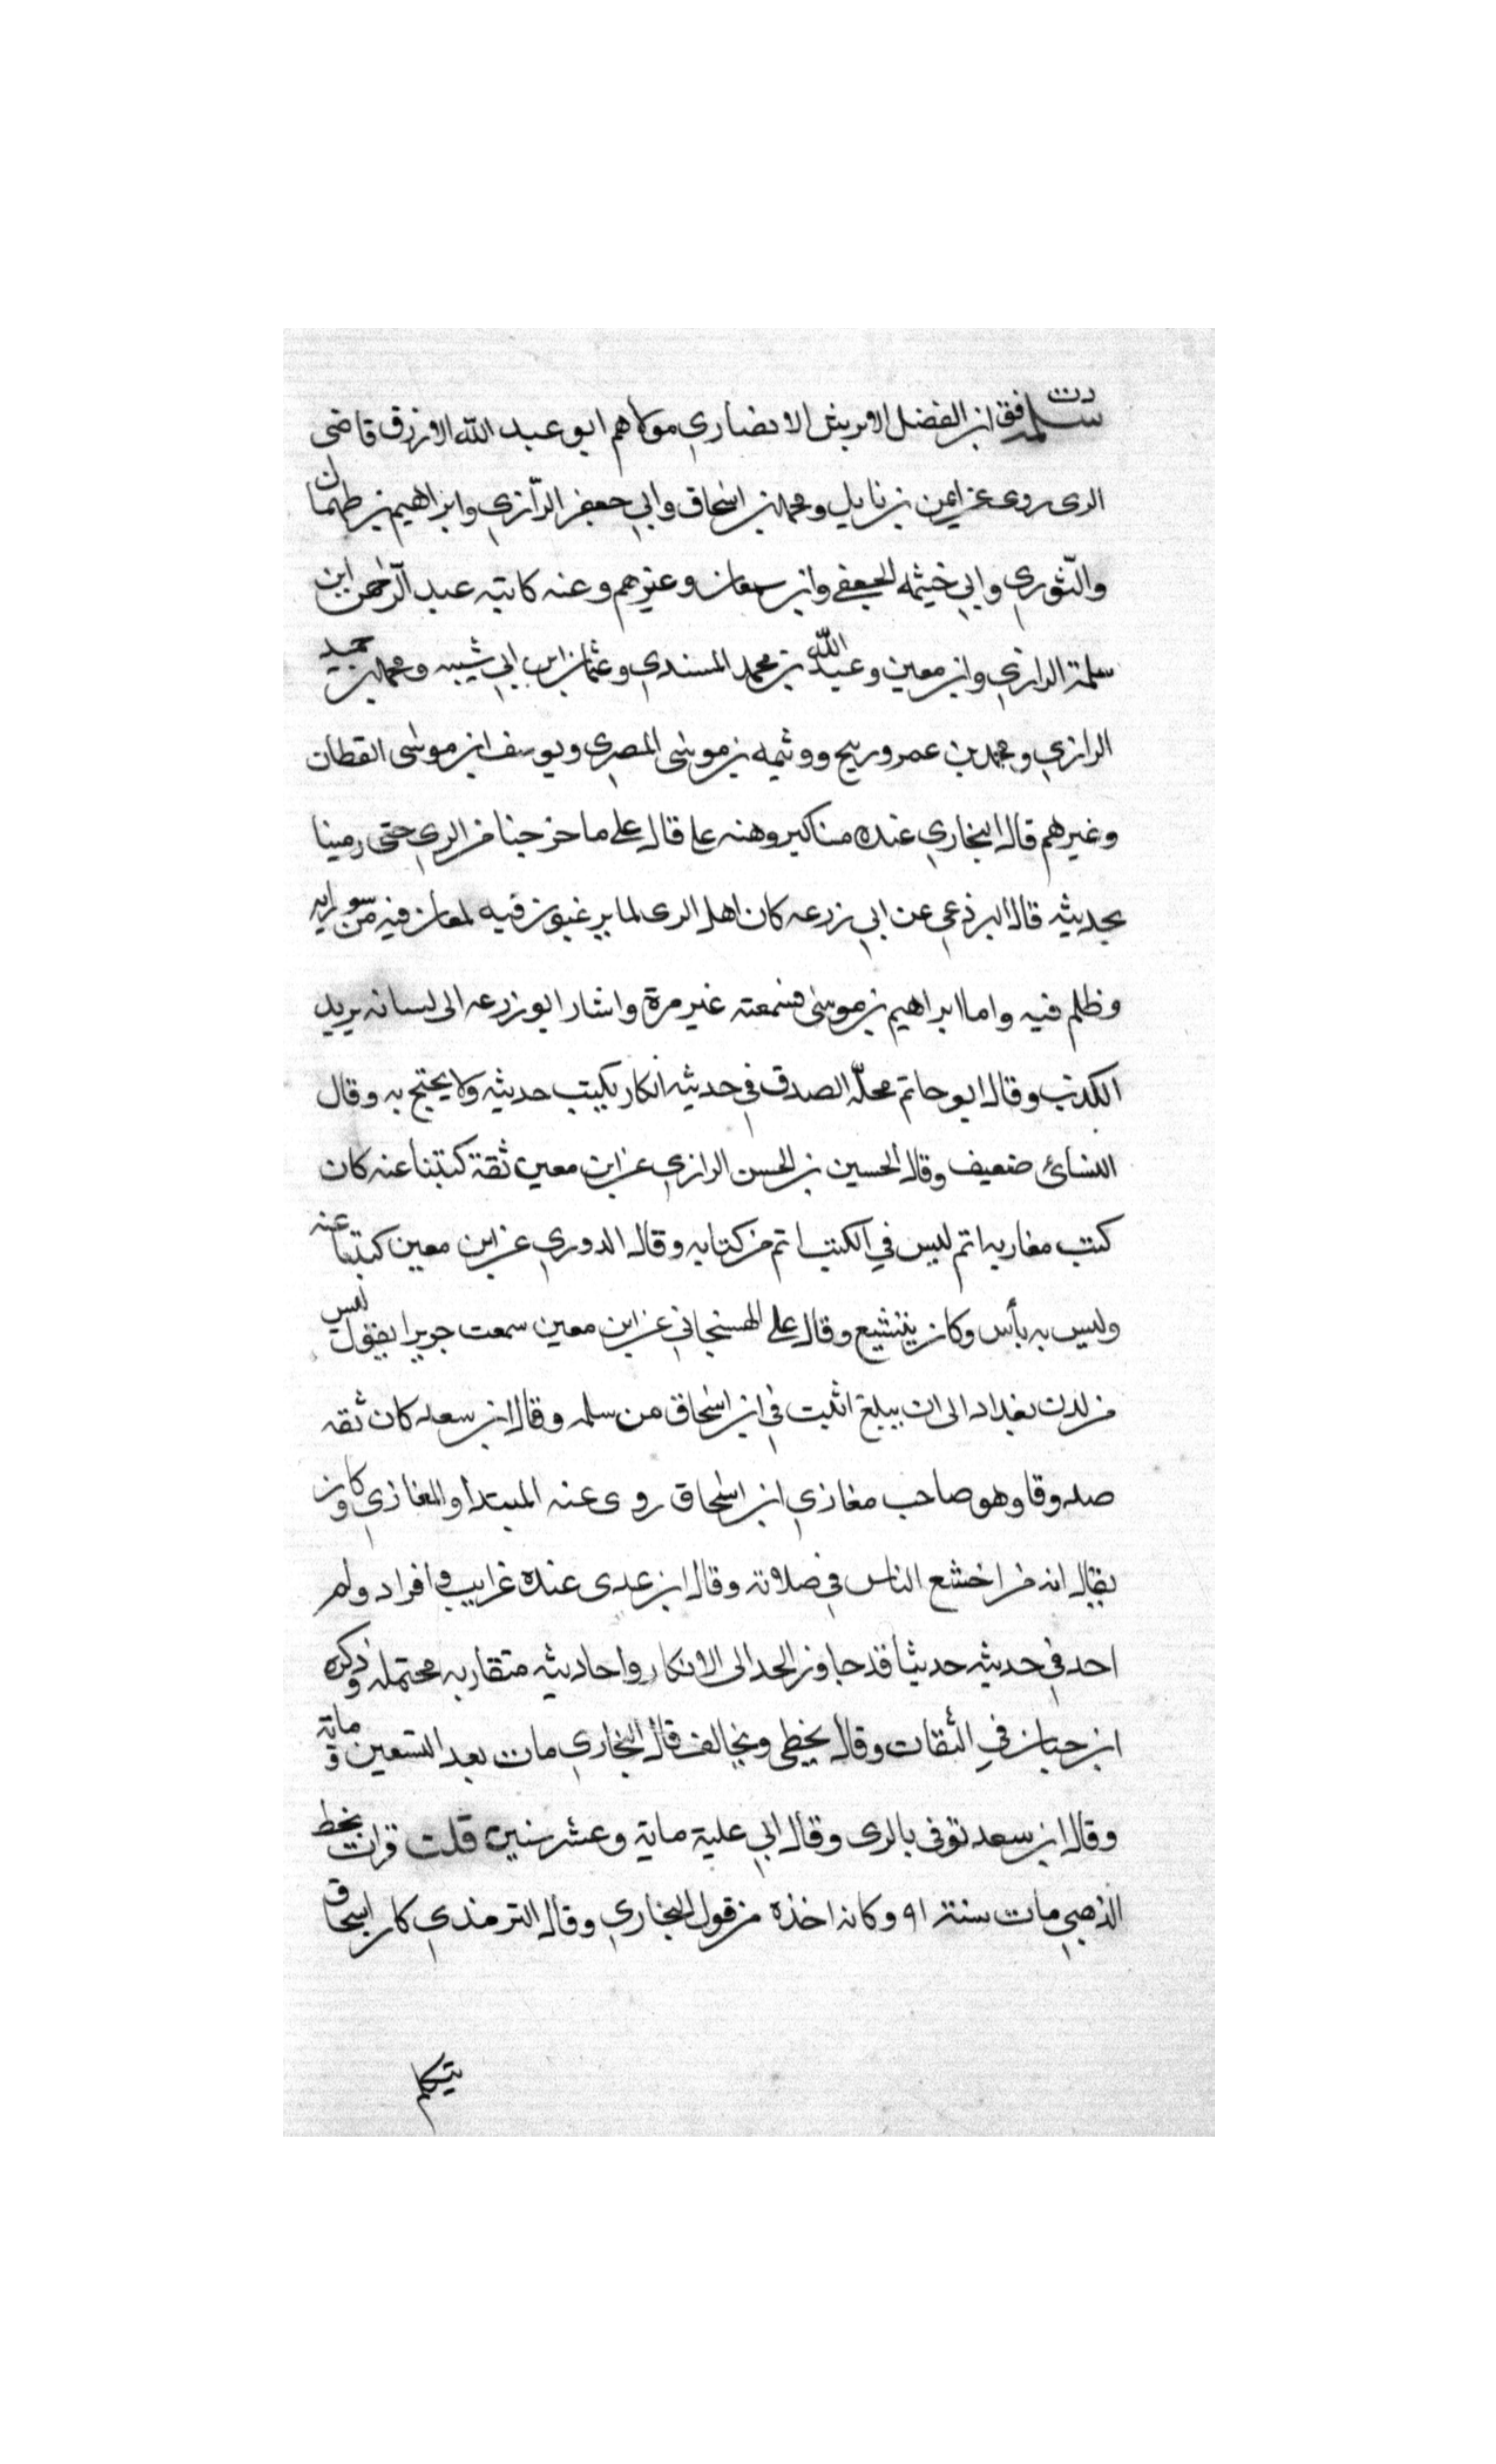 د ت فق
سلمة ابن الفضل الابرش الانصاري مولاهم ابو عبد الله الازرق قاضي
الرى روى عن ايمن بن نابل ومحمد بن اسحاق وابي جعفر الرّازي وابراهيم بن طهمان
والثّوري وابي خيثمه الجعفي وابن سمعان وغيرهم وعنه كاتبه عبد الرّحمن ابن
سلمة الرازي وابن معين وعبد الله بن محمد المسندي وعثمان ابن ابي شيبه ومحمد بن حميد
الرازي ومحمد بن عمرو زنيج ووثيمه بن موسى المصري ويوسف ابن موسى القطان
وغيرهم قال البخاري عنده مناكير وهنه علي قال علي ما خرجنا من الري حتى رمينا
بحديثه قال البرذعي عن ابي زرعه كان اهل الرى لا يرغبون فيه لمعان فيه من سو رايه
وظلم فيه واما ابراهيم بن موسى فسمعته غير مرة واشار ابو زرعه الى لسانه يريد
الكذب وقال ابو حاتم محلّه الصدق في حديثه انكار يكتب حديثه ولا يحتج به وقال
النسائ ضعيف وقال الحسين بن الحسن الرازي عن ابن معين ثقة كتبنا عنه كان
كتب مغازيه اتم ليس في الكتب اتم من كتابه وقال الدوري عن ابن معين كتبنا عنه
وليس به بأس وكان يتشيع وقال علي الهسنجاني عن ابن معين سمعت جريرا يقول ليس
من لدن بغداد الى ان يبلغ اثبت في ابن اسحاق من سلمه وقال ابن سعد كان ثقه
صدوقا وهو صاحب مغازي ابن اسحاق روى عنه المبتدا والمغازي وكان
يقال انه من اخشع الناس في صلاته وقال ابن عدى عنده غرايب وافراد ولم
احد في حديثه حديثا قد جاوز الحد الى الانكار واحاديثه متقاربه محتمله وذكره
ابن حبان في الثقات وقال يخطي ويخالف قال البخاري مات بعد التسعين وماية
وقال ابن سعد توفى بالرى وقال ابي عليه ماية وعشر سنين قلت قرات بخط
الذهبي مات سنة ٩١ وكانه اخذه من قول البخاري وقال الترمذي كان اسحاق
يتكلم